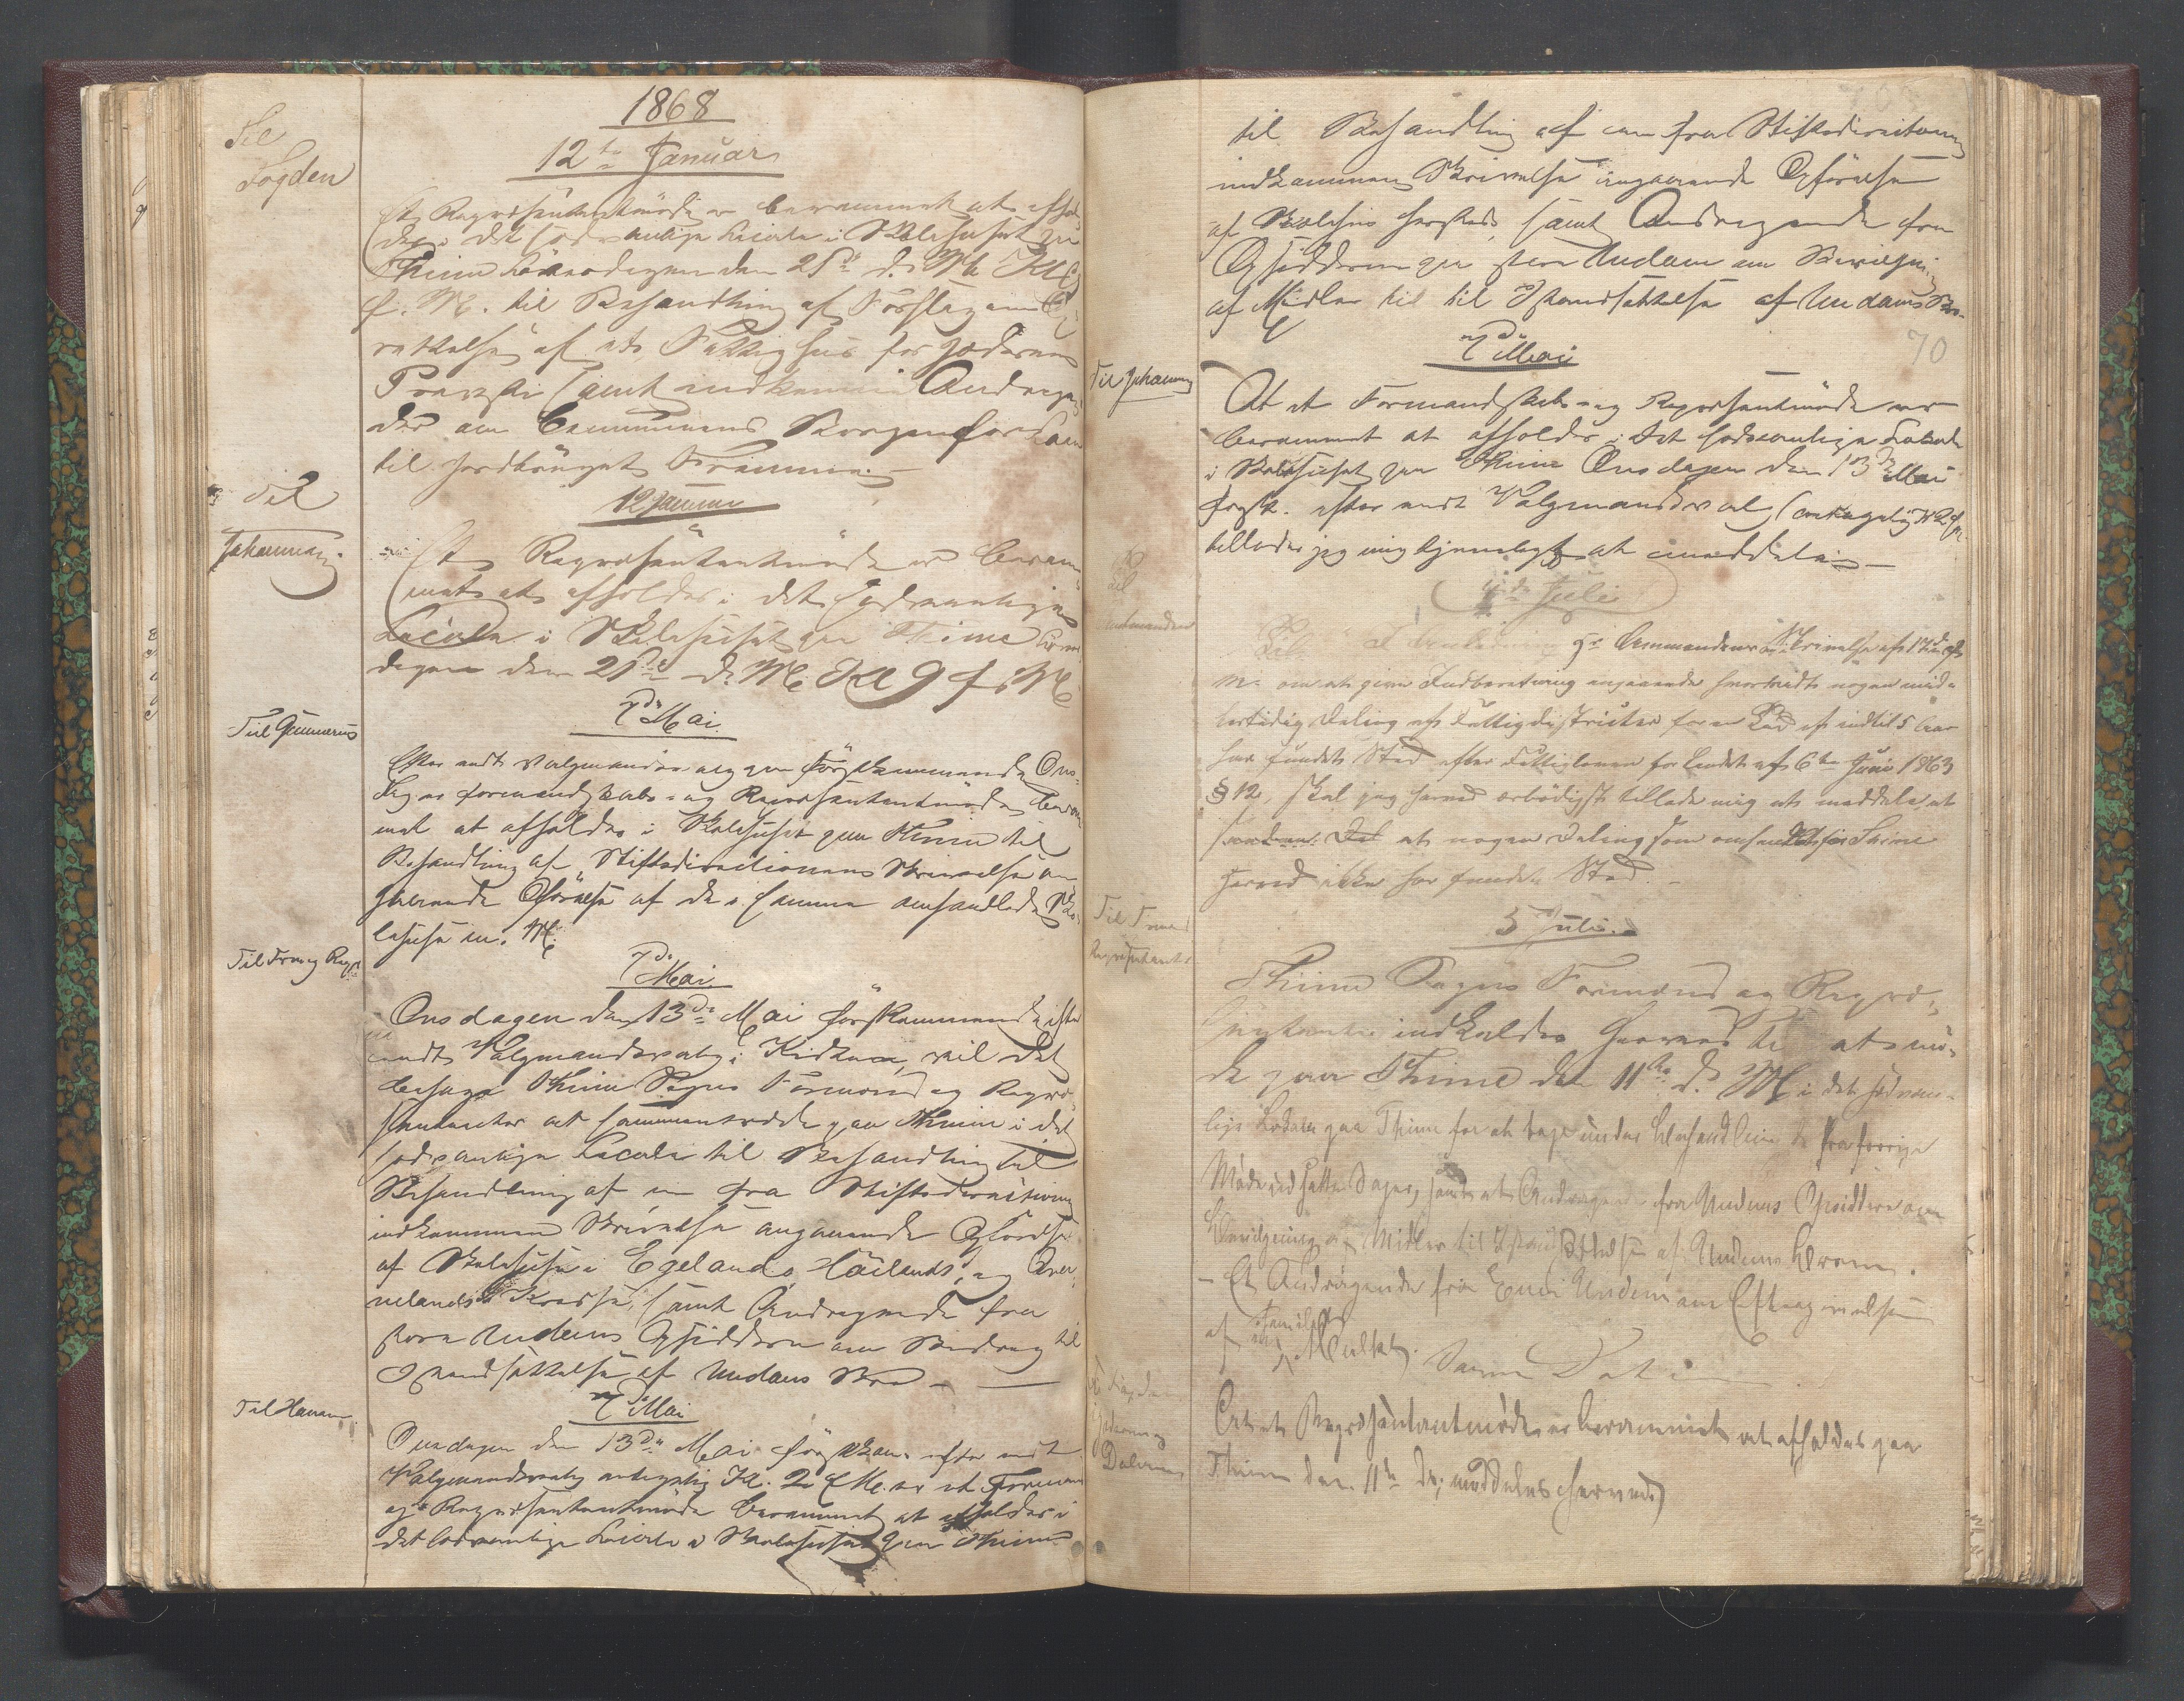 1868
12te Januar
Til
Fogden
Et Repræsentantmöde er berammet at afhol
des i det sædvanlige Locale i Skolehuset paa
Thime Löverdagen den 25de d. M. Kl 9
f. M. til Behandling af Forslag om Op
rettelse af et Fattighus for Jæderens
Provsti samt indkomne Andragen
der om Communens
til
12 Januar
Til
Johannes
Et Repræsentantmöde er beram
met at afholdes i det sædvanlige
Locale i Skolehuset paa Thime Löver
dagen den 25de d. M. Kl 9 f. M.
7de Mai
Til Gunnarus
Efter endt Valgmandsvalg paa förstkommende Ons-
dag er Formandskabs- og Repræsentantmöde beram
met at afholdes i Skolehuset paa Thime til
Behandling af Stiftsdirectionens Skrivelse an
gaaende Opförelse af de i samme omhandlede Sko-
lehuse m. M.
7de Mai
Til Form og Repr
Onsdagen den 13de Mai förstkommende efter
endt Valgmandsvalg i Kirken, vil det
behage Thime Sogns Formænd og Repræ
sentanter at sammentræde paa Thime i det
sædvanlige Locale til Behandling til
Behandling af en fra Stiftsdirectionen
indkommen Skrivelse angaaende Opförelse
af Skolehuse i Egelands, Höilands, og Qver-
nelands Kredse, samt Andragende fra
store Undems Opsiddere om Bidrag til
Istandsættelse af Undems Bro
7de Mai
Til Haavar
Onsdagen den 13de Mai förstkom. efter endt
Valgmandsvalg antagelig Kl. 2 E M. er et Formand
og Repræsentantmöde berammet at afholdes i
det sædvanlige Locale i Skolehuset paa Thime
til Behandling af en fra Stiftsdirectionen
indkommen Skrivelse angaaende Opförelse
af Skolehus hersteds, samt Andragende fra
Opsidderne paa store Undem om Bevilgning
af Midler til til Istandsættelse af Undems Bro.
7de Mai
70
Til Johannes
At et Formandskabs- og Repræsentmöde er
berammet at afholdes i det sædvanlige Locale
i Skolehuset paa Thime Onsdagen den 13de Mai
förstk. efter endt Valgmandsval (antagelig Kl 2
tillader jeg mig tjenstligst at meddele
4de Juli
Til
Amtmanden
I Anledning Hr Amtmandens Skrivelse af 17de
M. om at give Indberetning angaaende hvorvidt nogen mid-
lertidig Deling af Fattigdistrikter for en Tid af indtil 5 Aar
har fundet Sted efter Fattigloven for Landet af 6te Juni 1863
§ 12, skal jeg herved ærbödigst tillade mig at meddele, at
at nogen Deling som omhandlet for Thime
herred ikke har fundet Sted.
5 Juli
Til Formænd
Repræsentanter
Thime Sogns Formænd og Repræ-
sentanter indkaldes herved til at mö-
de paa Thime den 11te d. M. i det sædvan-
lige Locale paa Thime for at tage under Behandling de fra forrige
Möde udsatte Sager, samt et Andragende fra Undems Opsiddere om
Bevilgning af Midler til Istandsættelse af Undems Broen.
- Et Andragende fra Undem om Eftergivelse
af
Mulkt.
Samme Dato
Til Fogden
Jæderen og
Dalerne
At et Repræsentantmöde er berammet at afholdes paa
Thime den 11te ds, meddeles herved